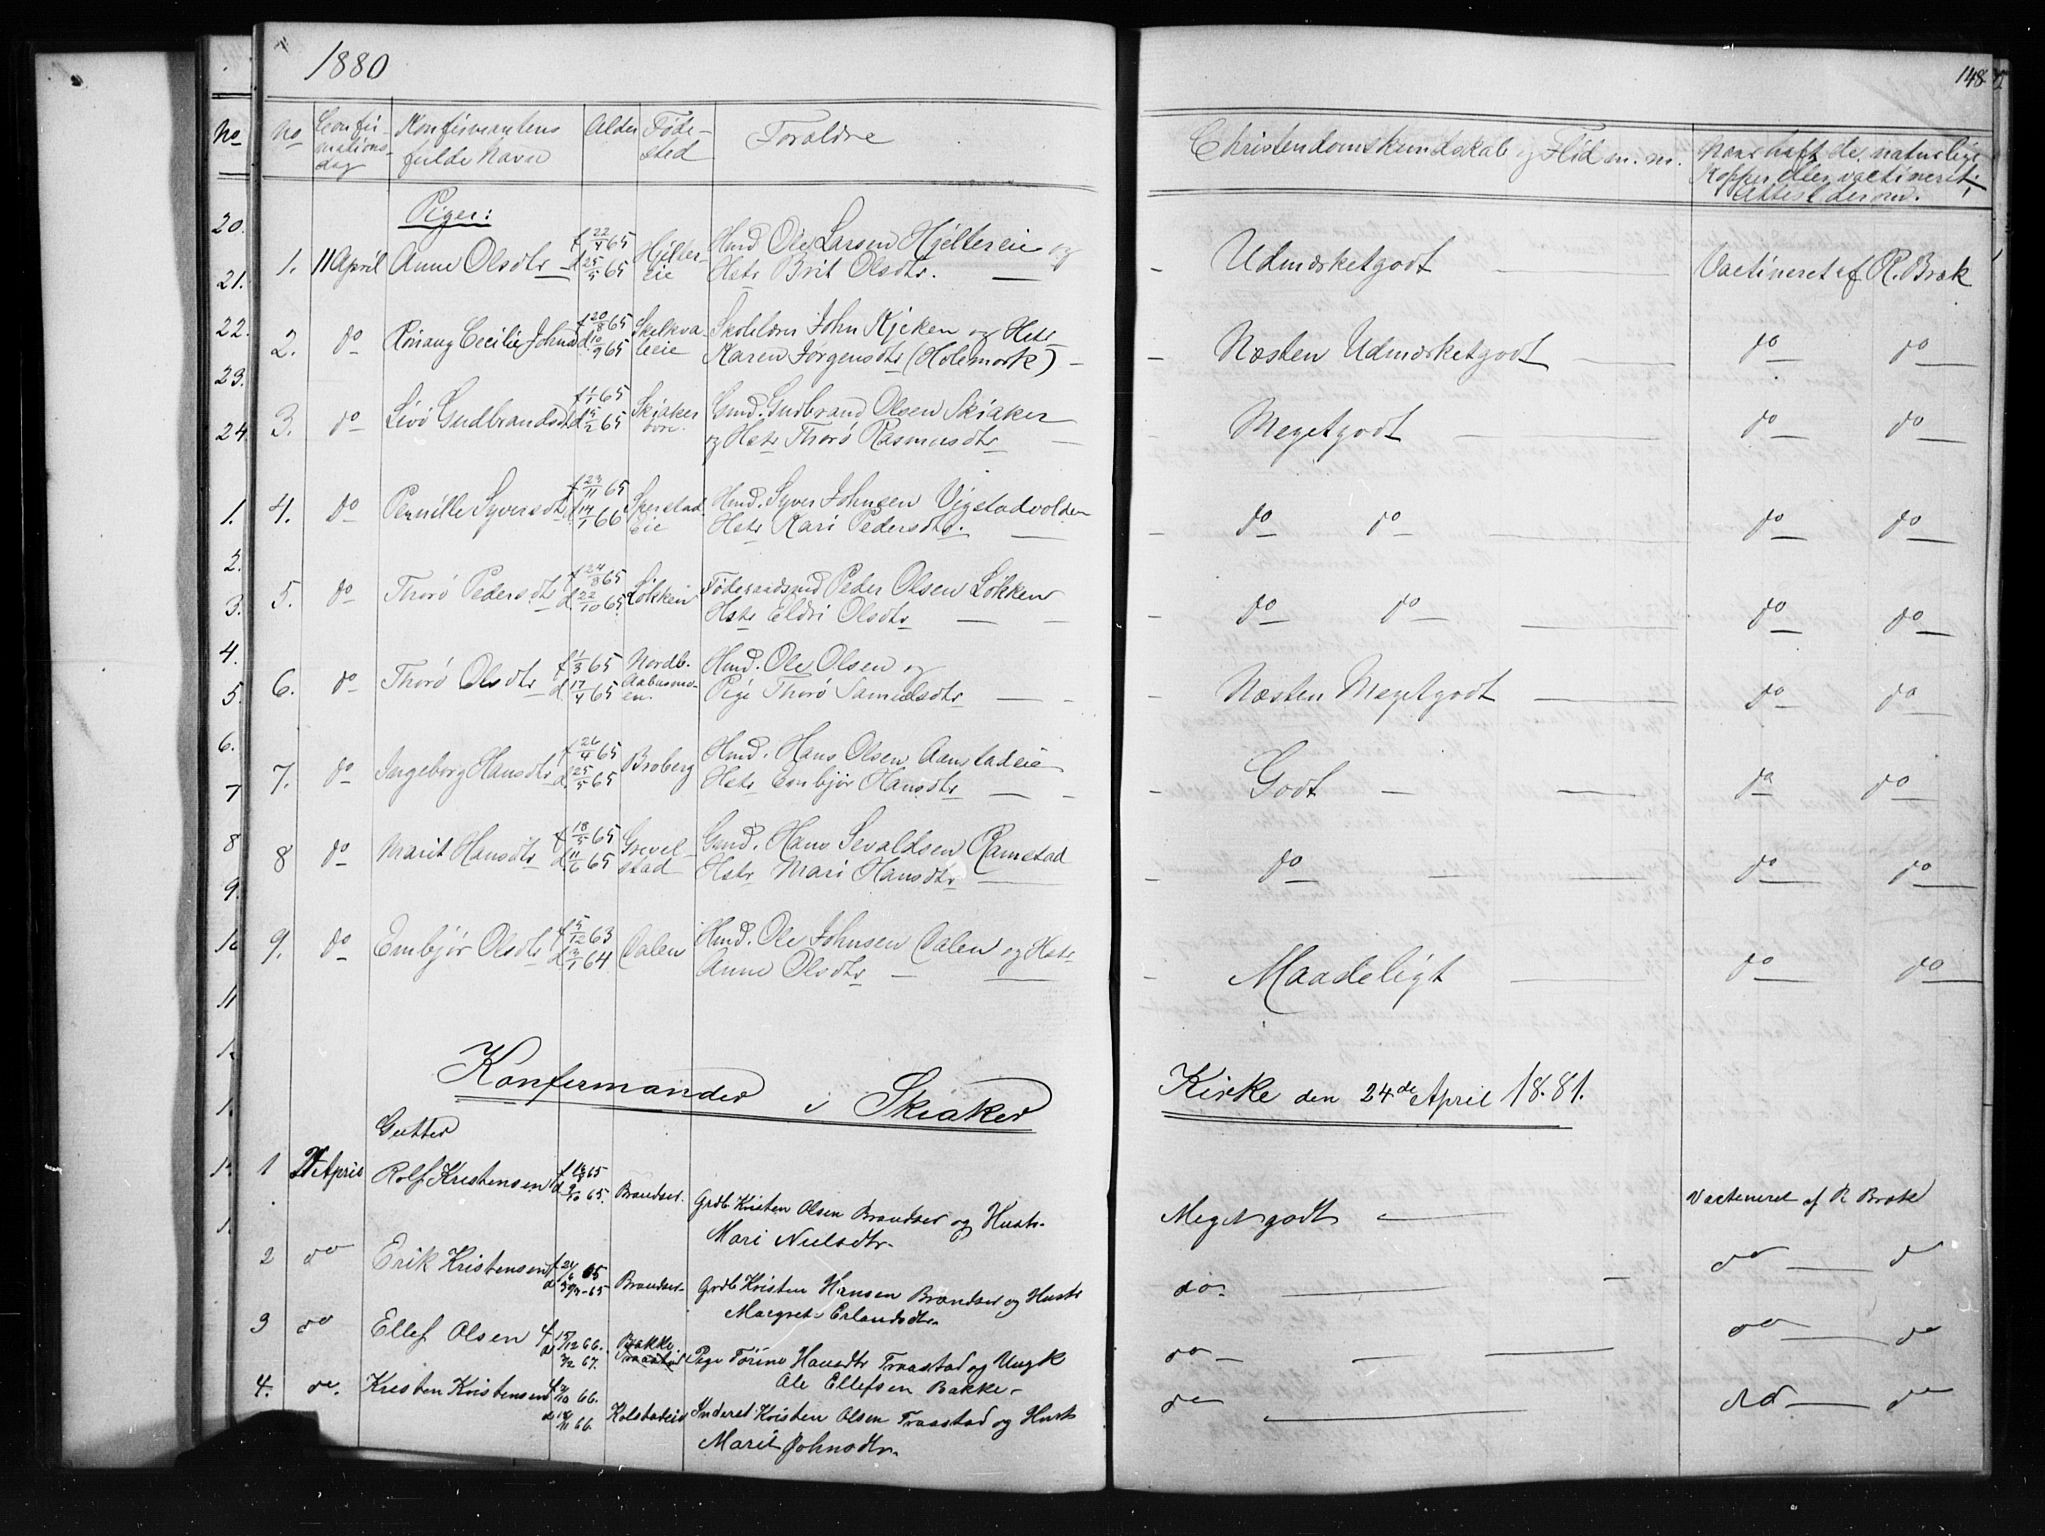 1880
148
No
No
Confir-
mations-
dag
Konfirmantens
fulde Navn
Alder
Føde-
sted
Foraldre
Christendomskundskab og Flid m. m.
Naar haft de naturlige
Kopper eller vactineret;
Attest derom.
20.
21.
22.
23.
24
1.
2.
3.
4.
5.
6.
7
8
9.
10
11
Piger:
1. 11 April Anne Olsdtr f 22/4 65 d 25/5 65 Hjelter-
eie
Hmd Ole Larsen Hjeltereie og
Hstr Brit Olsdtr.
Udmærketgodt Vactineret af R. Bræk
2. do Rønaug Cecilie Johnsd f 20/8 65 d 10/9 65
Skolelærer John Kjeken og Hstr
Karen Jørgensdtr (Holemork)
Næsten Udmærketgodt do do
3. do Sivø Gudbrandsdt f 1/1 65 d 5/2 65 Skiaker
Gmd. Gudbrand Olsen Skiaker
og Hstr Thorø Rasmusdtr
Megetgodt do do
4. do Pernille Syversdtr f 23/11 65 d 14/1 66 Sperstad
Eie
Hmd. Syver Johnsen Vigstadvolden
Hstr Kari Pedersdtr.
do do do do
5. do Thorø Pedersdtr f 24/8 65 d 22/10 65 Løkken
Føderaadsmd Peder Olsen Løkken
Hstr Eldri Olsdtr
do do do do
6. do Thorø Olsdtr f 1/3 65 d 17/4 65 Nordb.
Aabusmo-
en.
Hmd. Ole Olsen og
Pige Thorø Samuelsdtr
Næsten Megetgodt do do
7. do Ingeborg Hansdtr f 26/4 65 d 25/5 65 Broberg
Hmd. Hans Olsen Aamstadeie
Hstr Embjør Hansdtr
Godt do do
8 do Marit Hansdtr f 18/5 65 d 11/6 65 Grevel-
stad
Gmd. Hans Sevaldsen Ramstad
Hstr Mari Hansdtr
do do do
9. do Embjør Olsdtr f 5/12 63 d 3/1 64 Dalen
Hmd. Ole Johnsen Dalen og Hstr
Anne Olsdtr
Maadeligt do do
Konfermander i Skiaker Kirke den 24de April 1881.
Gutter
1 24 April Rolf Kristensen d 9/10 65. Brandser.
Grdb Kristen Olsen Brandser og Hustr.
Mari Nielsdtr.
Megetgodt Vacteneret af R Bræk
2 do Erik Kristensen f 24/6 65 Brandser
Grdb Kristen Hansen Brandser og Hustr
Margret Erlandsdtr.
do. do do
3 do Ellef Olsen f 15/12 66. 67. Bakke.
Traastad
Pige Torine Hansdtr Traastad og Ungk
Ole Ellefsen Bakke
do do do
4. do. Kristen Kristensen 66. 66. Kolstadeie
Inderst Kristen Olsen Traastad og Hustr
Marit Johnsdtr.
do do do